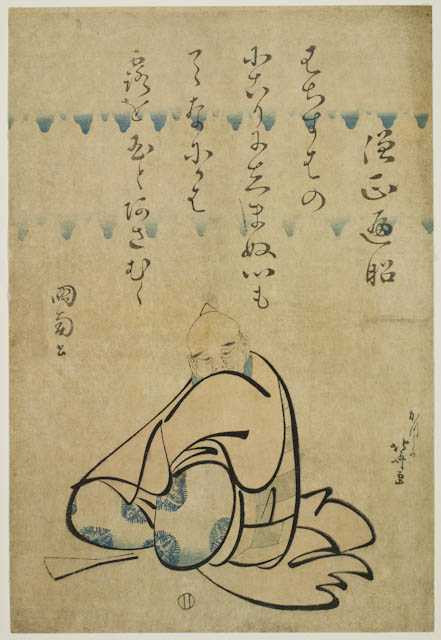 僧正遍昭
はちすはの
にこりにしまぬ心も
てなにかは
露を玉とあさむく
かつしか
北斎画